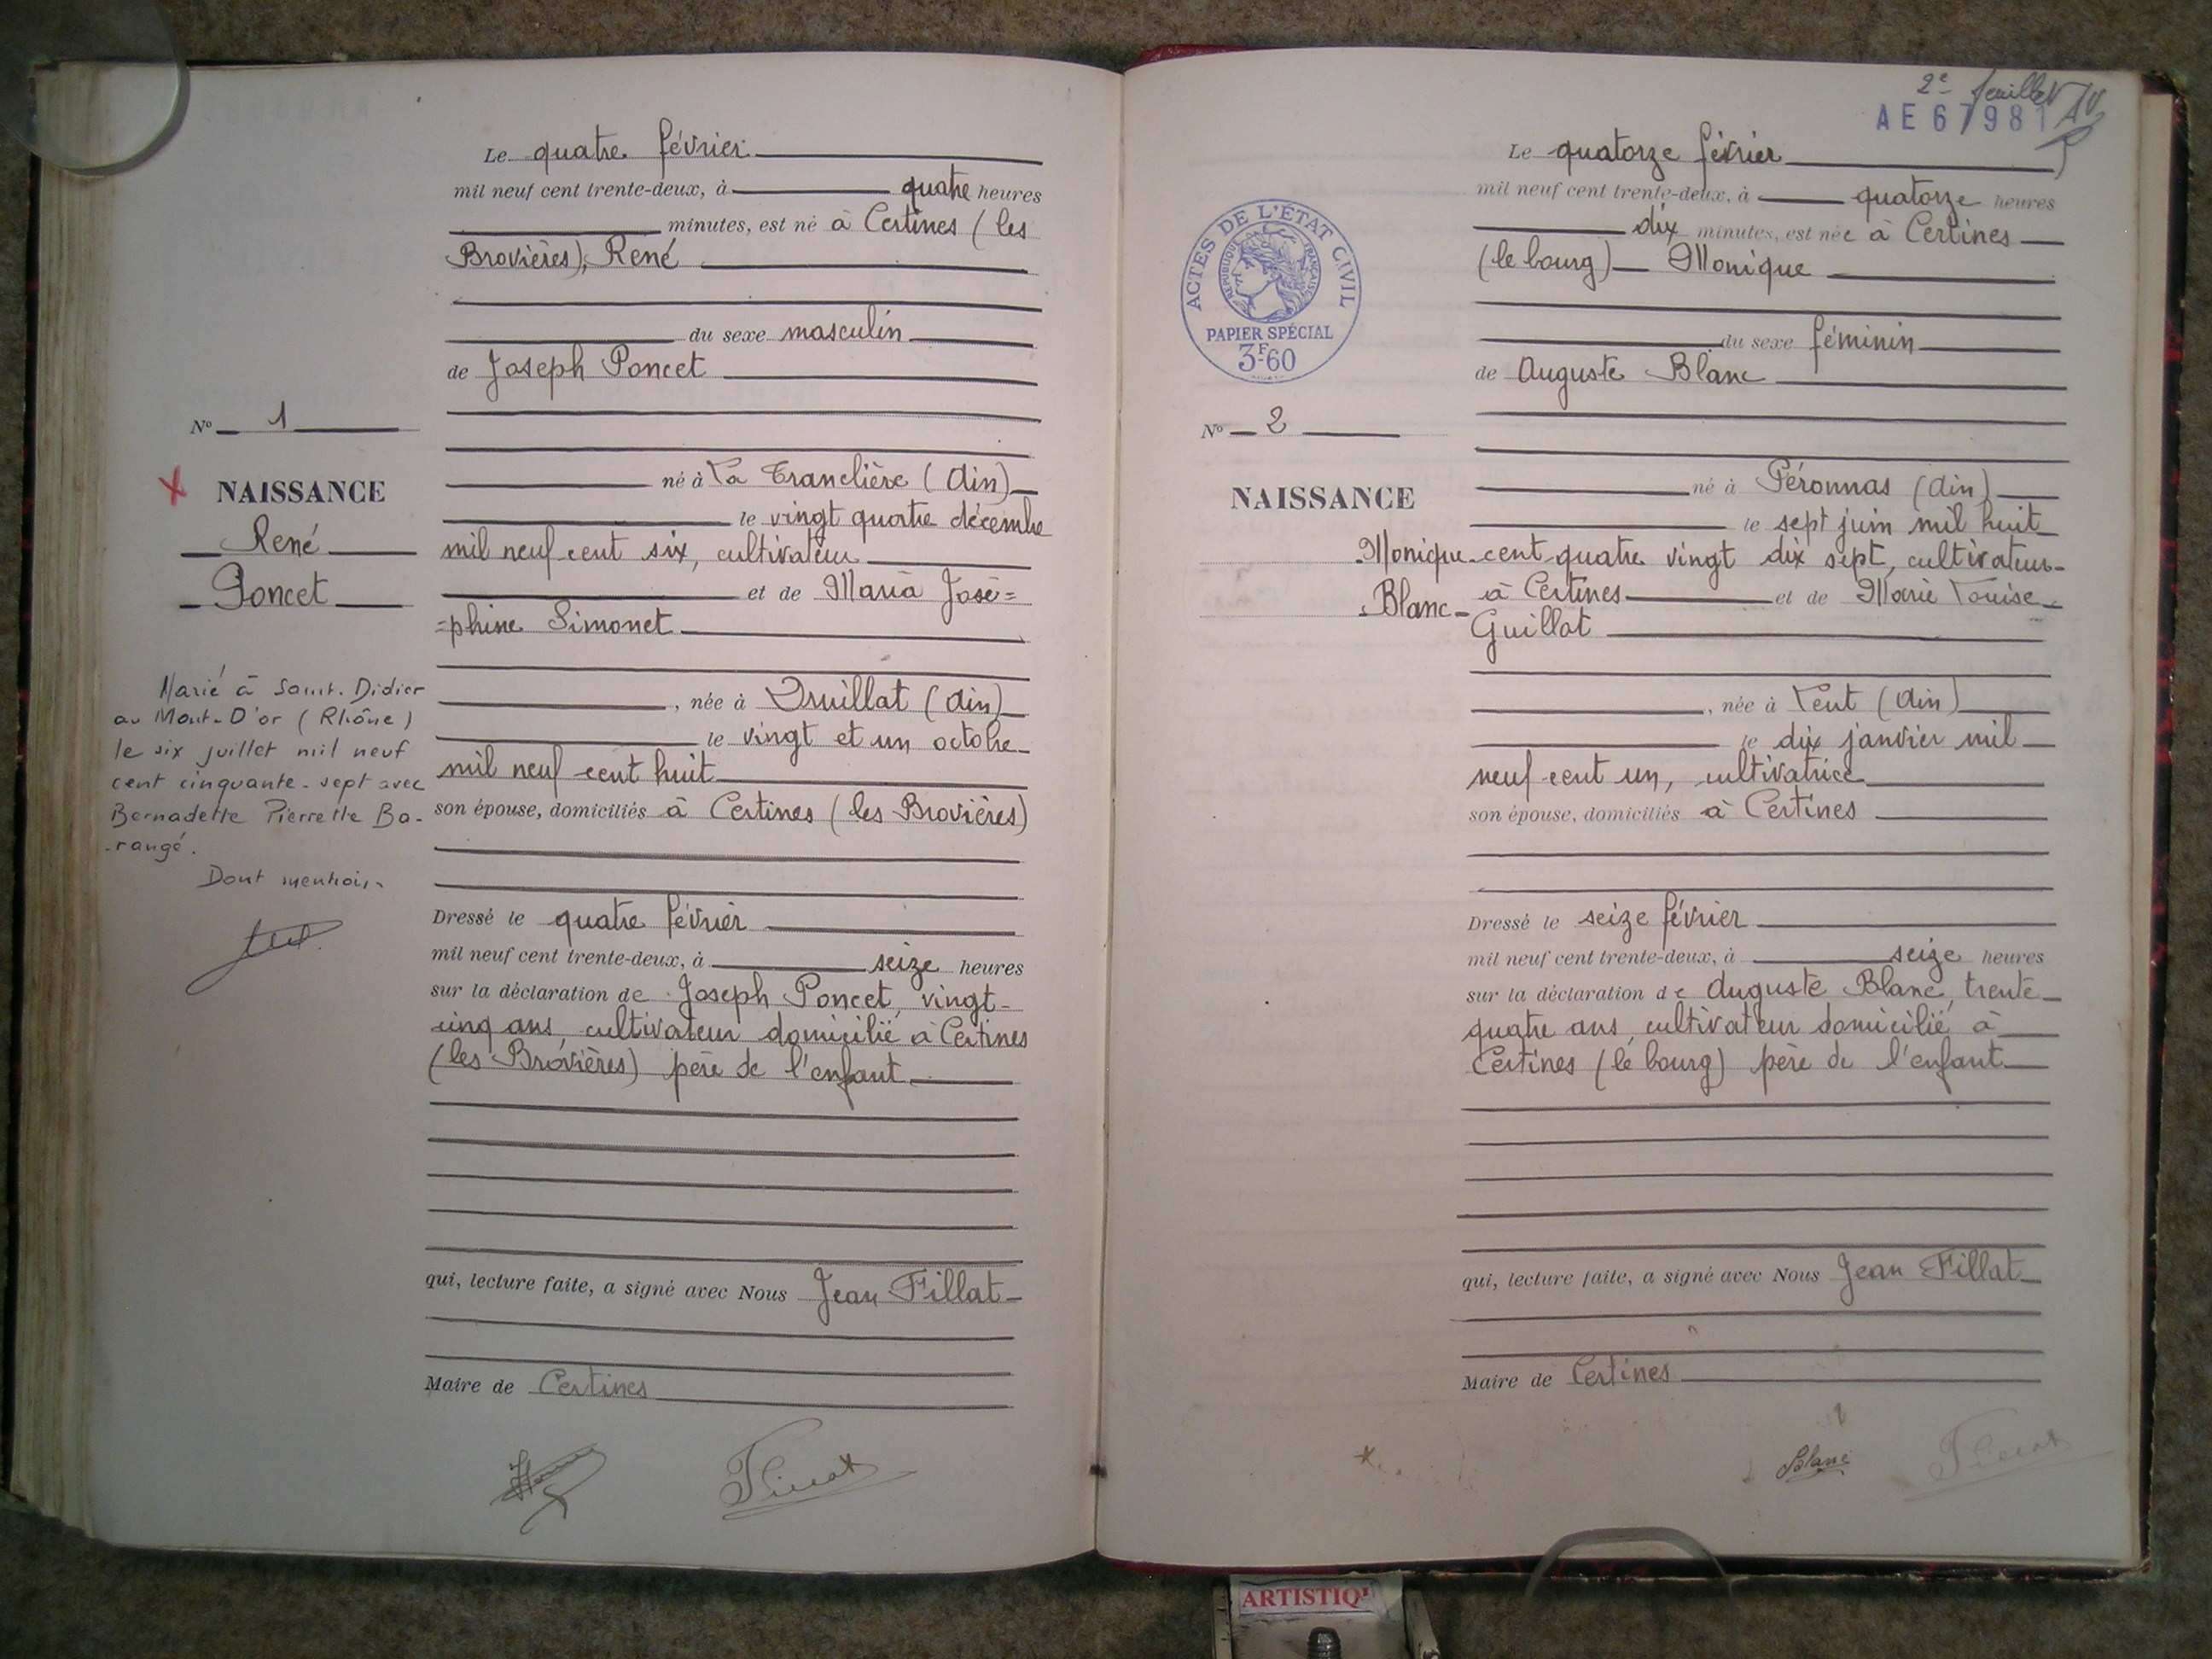 Le quatre février
mil neuf cent trente-deux, à quatre heures
minutes, est né à Certines (les
Brovières), René
du sexe masculin
de Joseph Poncet
N° 1
né à La Tranclière (Ain)
X NAISSANCE
le vingt quatre décembre
René
mil neuf cent six, cultivateur
et de Maria José=
Poncet
=phine Simonet
Marié à Saint-Didier
au Mont-D'or (Rhône)
le six juillet mil neuf
cent cinquante-sept avec
Bernadette Pierrette Ba-
-rangé.
Dont mention.
, née à Druillat (Ain)
le vingt et un octobre
mil neuf cent huit
son épouse, domiciliés à Certines (les Brovières)
Dressé le quatre février
mil neuf cent trente-deux, à seize heures
sur la déclaration de Joseph Poncet, vingt-
cinq ans, cultivateur domicilié à Certines
(les Brovières) père de l'enfant
qui, lecture faite, a signé avec Nous Jean Fillat
Maire de Certines
2e feuillet
AE 67981
Le quatorze février
mil neuf cent trente-deux, à quatorze heures
dix minutes, est née à Certines
(le bourg) Monique
du sexe féminin
de Auguste Blanc
ACTES DE L'ÉTAT CIVIL
RÉPUBLIQUE FRANÇAISE
PAPIER SPÉCIAL
3F60
N° 2
né à Péronnas (Ain)
NAISSANCE
le sept juin mil huit
Monique
cent quatre vingt dix sept, cultivateur
Blanc
à Certines et de Marie Louise
Guillot
, née à Lent (Ain)
le dix janvier mil
neuf cent un, cultivatrice
son épouse, domiciliés à Certines
Dressé le seize février
mil neuf cent trente-deux, à seize heures
sur la déclaration de Auguste Blanc, trente
quatre ans, cultivateur domicilié à
Certines (le bourg) père de l'enfant
qui, lecture faite, a signé avec Nous Jean Fillat
Maire de Certines
Blanc
ARTISTIQ